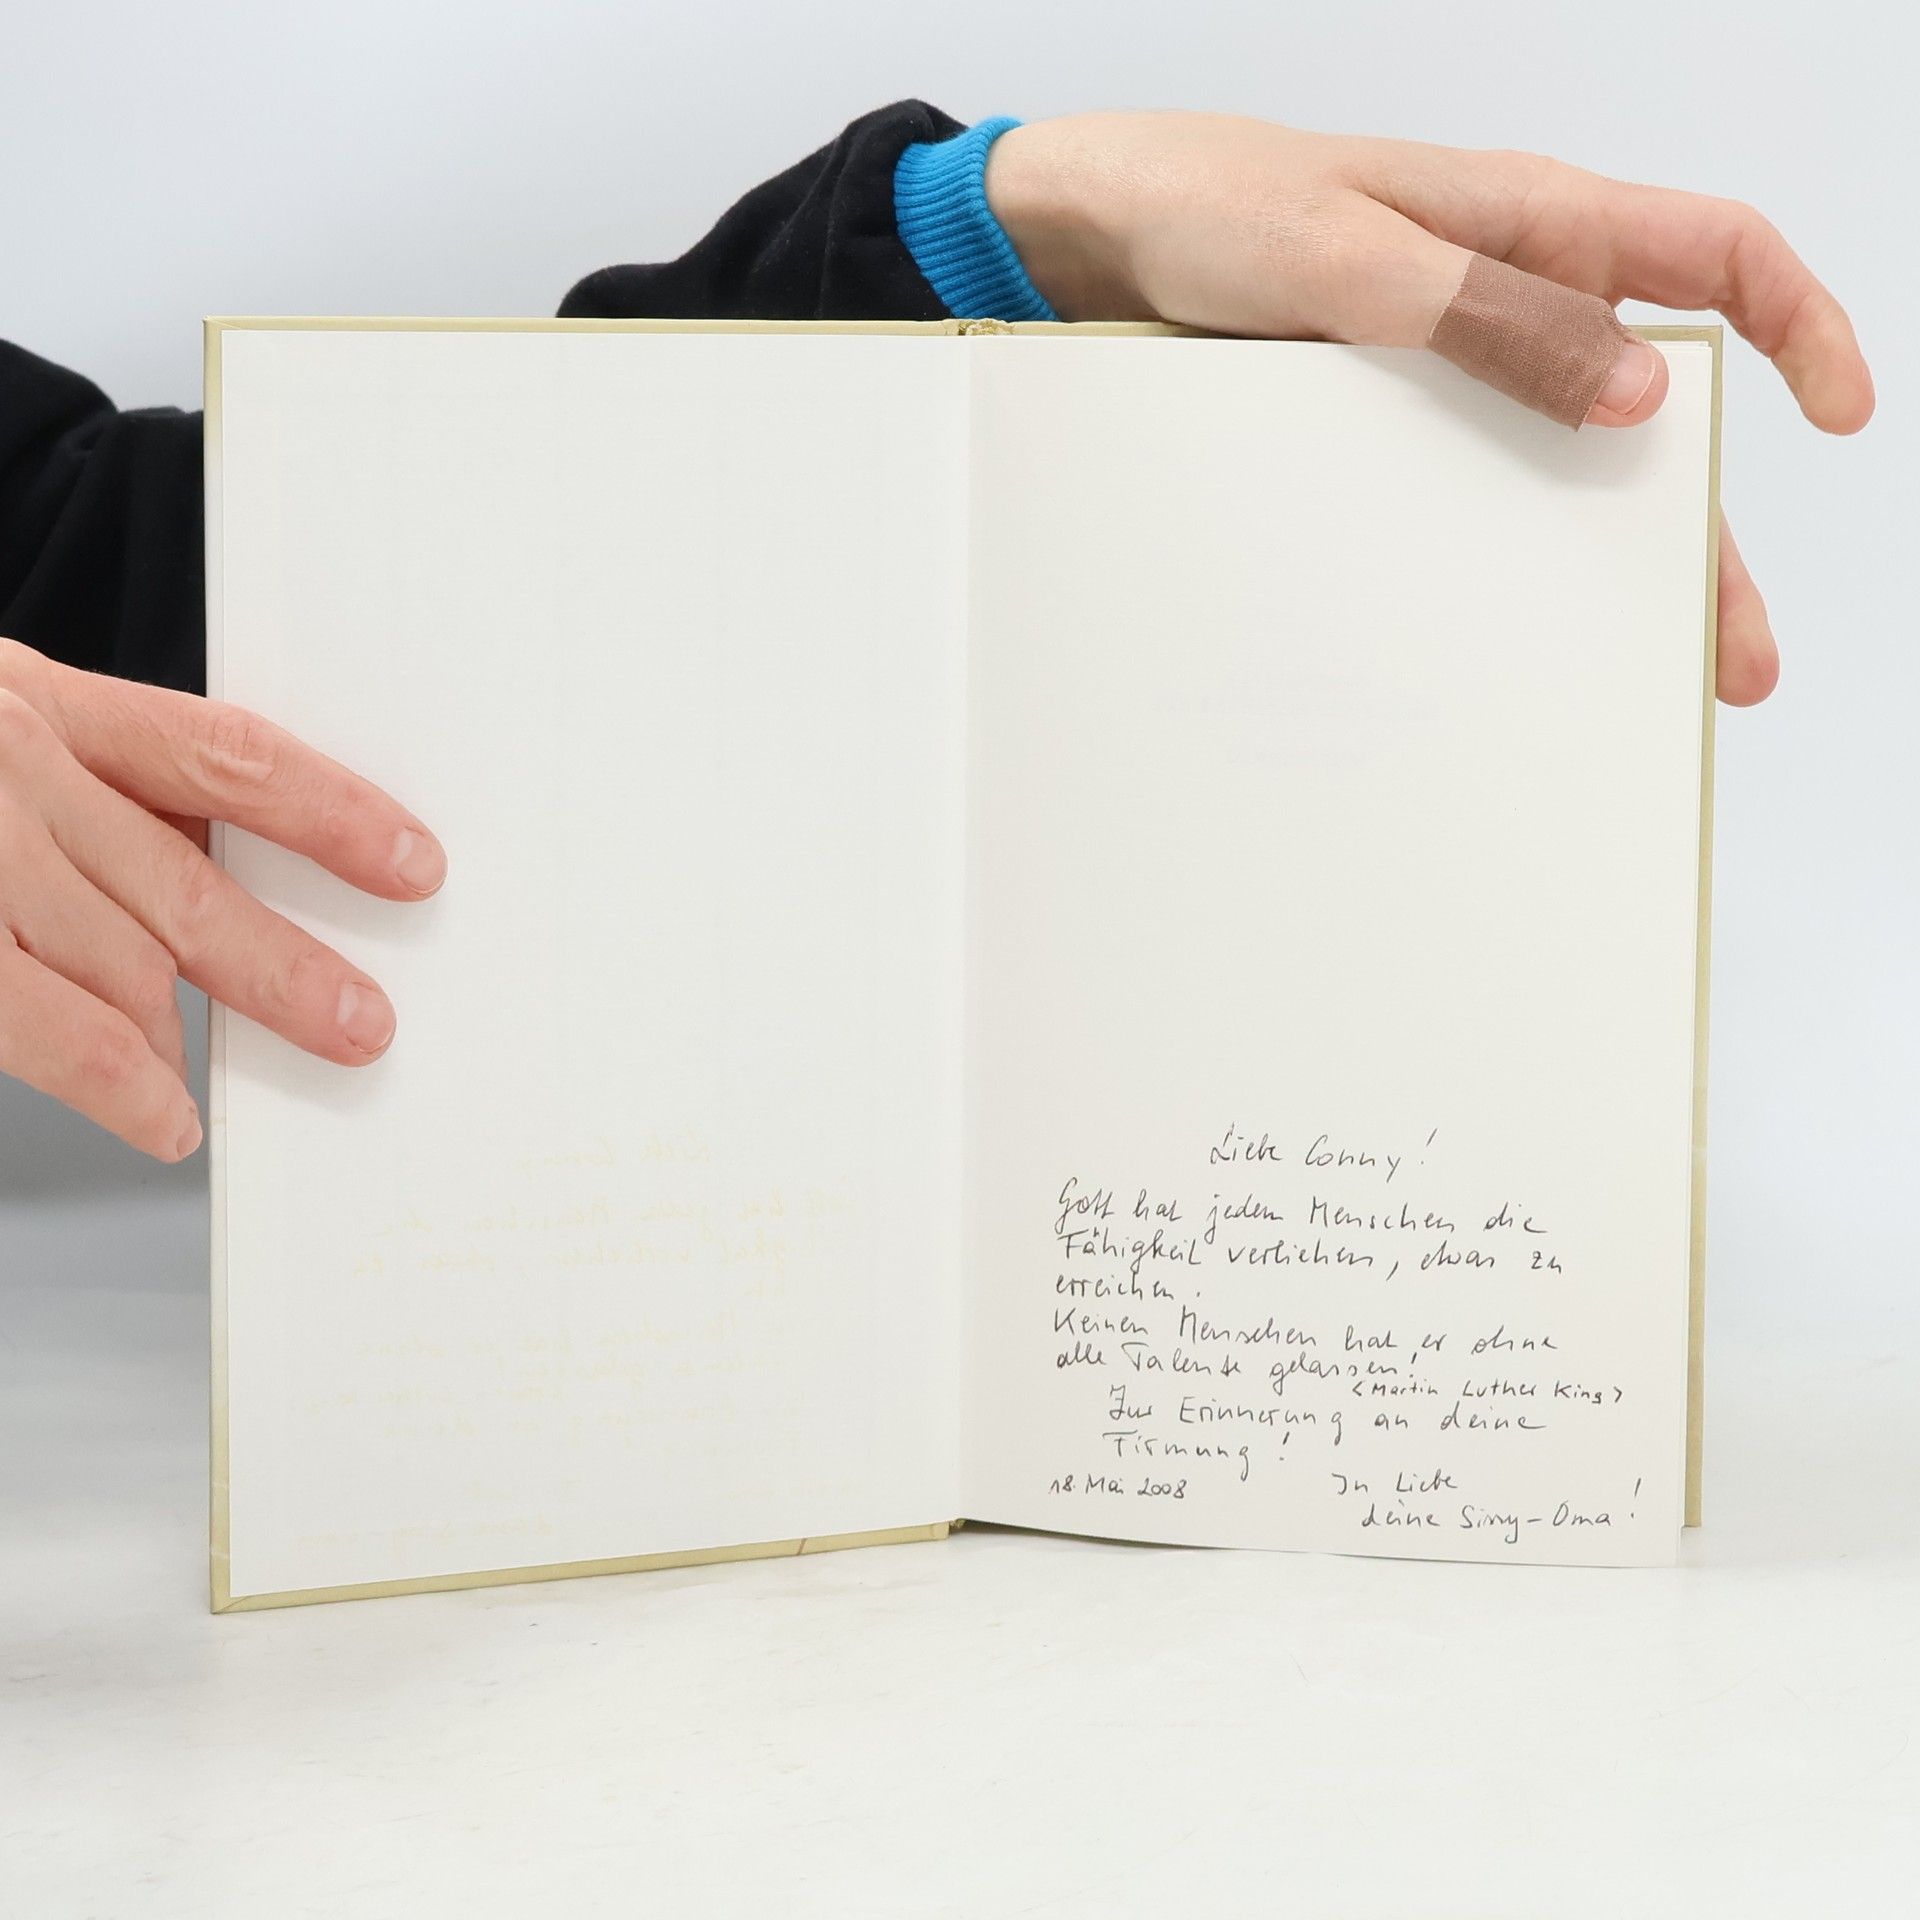 Liebe Conny!
Gott hat jedem Menschen die
Fähigkeit verliehen, etwas zu
erreichen.
Keinen Menschen hat er ohne
alle Talente gelassen!
<Martin Luther King>
Zur Erinnerung an deine
Firmung!
18. Mai 2008 In Liebe
deine Sissy-Oma!